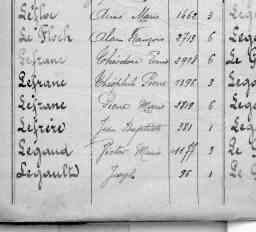 Lefloc Anne Marie 1469 3 Leg
Le Floch Alan François 2713 6 Lego
Lefranc Théodore 2918 6 Le G
Lefranc Théophile Pierre 1196 3 Lego
Lefranc Pierre Marie 6 Lego
Lefrère Jean Baptiste 381 1 Leg
Legaud Victor Marie 1177 3 Le G
Legault Joseph 96 1 Le G